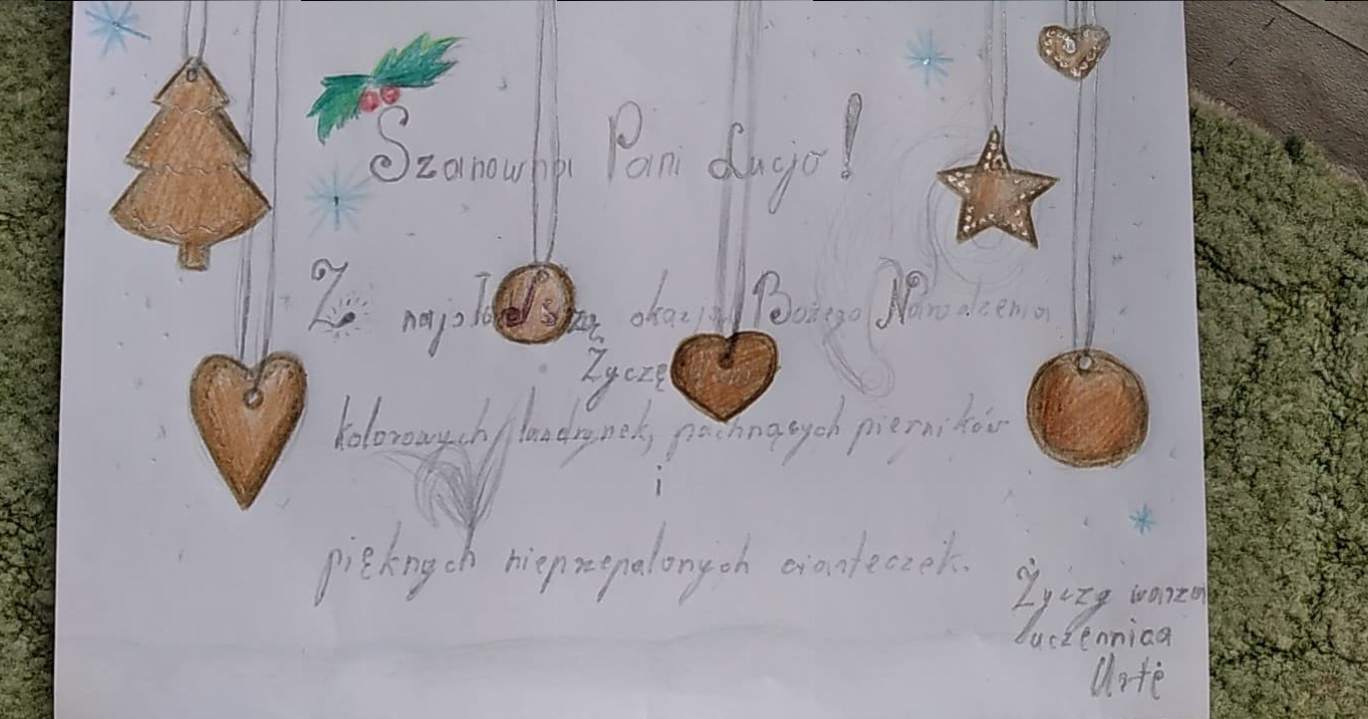 Szanowna Pani Lucjo!
Z najsłodszą okazją Bożego Narodzenia
Życzę Pani
kolorowych landrynek, pachnących pierników
i
pięknych nieprzepalonych ciasteczek.
Życzy wasza
uczennica
Urtė